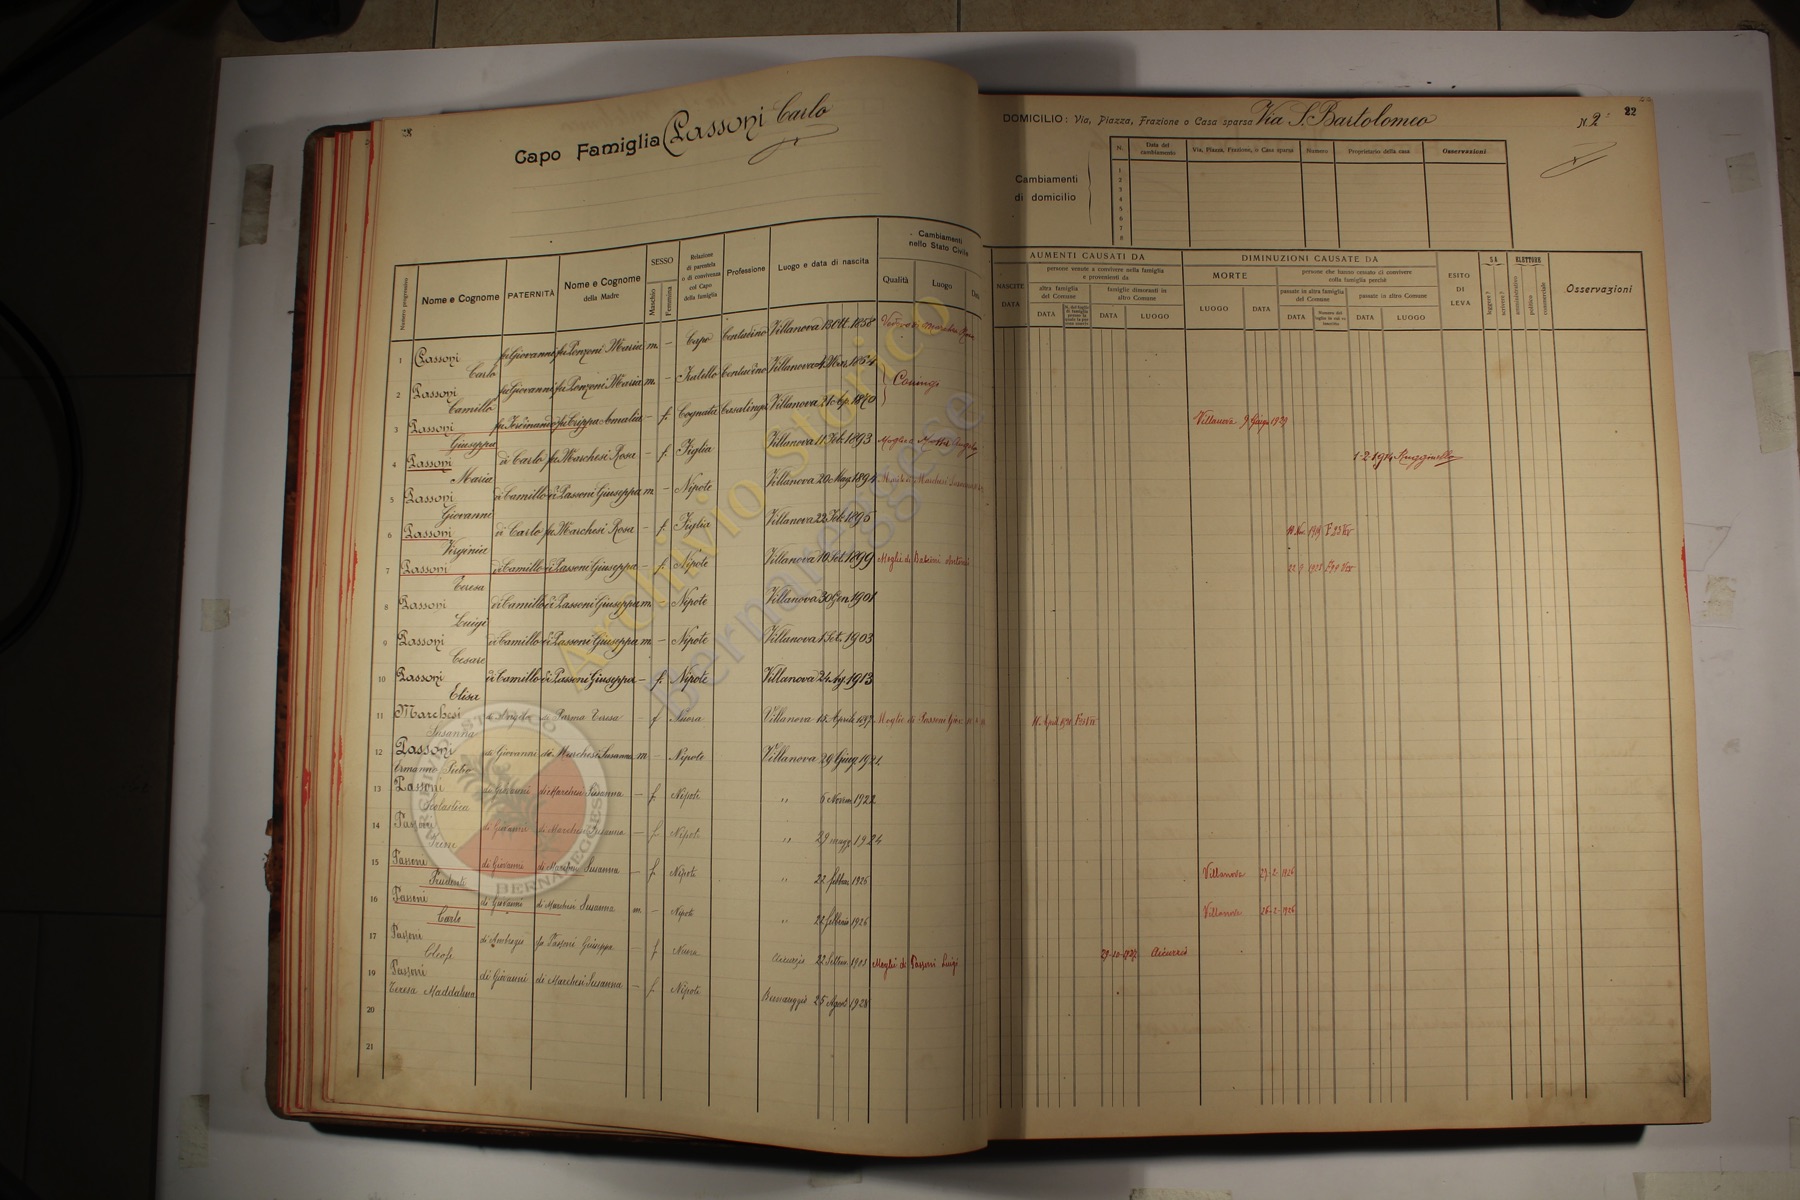 Capo Famiglia Passoni Carlo
DOMICILIO: Via, Piazza, Frazione o Casa sparsa Via S. Bartolomeo N. 2
22
Cambiamenti di domicilio
N. Data del cambiamento Via, Piazza, Frazione, o Casa sparsa Numero Proprietario della casa Osservazioni
1
2
3
4
5
6
7
8
Numero progressivo
Nome e Cognome
PATERNITÀ
Nome e Cognome della Madre
SESSO
Maschio
Femmina
Relazione di parentela o di convivenza col Capo della famiglia
Professione
Luogo e data di nascita
Cambiamenti nello Stato Civile
Qualità
Luogo
AUMENTI CAUSATI DA
NASCITE
DATA
persone venute a convivere nella famiglia e provenienti da
altra famiglia del Comune
DATA
famiglie dimoranti in altro Comune
DATA
LUOGO
DIMINUZIONI CAUSATE DA
MORTE
LUOGO
DATA
persone che hanno cessato di convivere colla famiglia perchè
passate in altra famiglia del Comune
DATA
passate in altro Comune
DATA
LUOGO
ESITO DI LEVA
SA
leggere?
scrivere?
ELETTORE
amministrativo
politico
commerciale
Osservazioni
1 Passoni Carlo fu Giovanni fu Ponzoni Maria m. – Capo Contadino Villanova 13 Ott. 1858 Vedovo di
2 Passoni Camillo fu Giovanni fu Ponzoni Maria m. – Fratello Contadino Villanova Mar. 1864 Coniugi
3 Passoni Giuseppa fu Ferdinando fu Crippa Amalia – f. Cognata Casalinga Villanova 21 Ap. 1870 Villanova 9 Giugno 1929
4 Passoni Maria di Carlo fu Marchesi Rosa – f. Figlia Villanova 11 Feb. 1893 Moglie a Motta Angelo 1-2-1914 Rugginello
5 Passoni Giovanni di Camillo di Passoni Giuseppa m. – Nipote Villanova 20 Mag. 1894 Marito di Marchesi Susanna
6 Passoni Virginia di Carlo fu Marchesi Rosa – f. Figlia Villanova 22 Feb. 1895
7 Passoni Teresa di Camillo di Passoni Giuseppa – f. Nipote Villanova 10 Set. 1899 Moglie di
8 Passoni Luigi di Camillo di Passoni Giuseppa m. – Nipote Villanova 30 Gen. 1901
9 Passoni Cesare di Camillo di Passoni Giuseppa m. – Nipote Villanova 1 Set. 1903
10 Passoni Elisa di Camillo di Passoni Giuseppa – f. Nipote Villanova 24 1913
11 Marchesi Susanna di Angelo di Parma Teresa – f Nuora Villanova 15 Aprile 1897 Moglie di Passoni Giov.
12 Passoni Ermanno Pietro di Giovanni di Marchesi Susanna m – Nipote Villanova 29 Giug. 1921
13 Passoni Scolastica di Giovanni di Marchesi Susanna – f. Nipote " 6 Novem 1922
14 Passoni di Giovanni di Marchesi Susanna – f. Nipote " 29 magg 1924
15 Passoni di Giovanni di Marchesi Susanna – f. Nipote " 22 febbra 1926 Villanova 27-2-1926
16 Passoni Carlo di Giovanni di Marchesi Susanna m. – Nipote " 22 febbraio 1926 Villanova 26-2-1926
17 Passoni Cleofe di Ambrogio fu Passoni Giuseppa – f Nuora 22 Settem. 1901 Moglie di Passoni Luigi 29-10-1927 Aicurzio
19 Passoni Teresa Maddalena di Giovanni di Marchesi Susanna – f. Nipote Bernareggio 25 Agosto 1928
20
21
Archivio Storico
Bernareggese
ARCHIVIO STORICO BERNAREGGESE